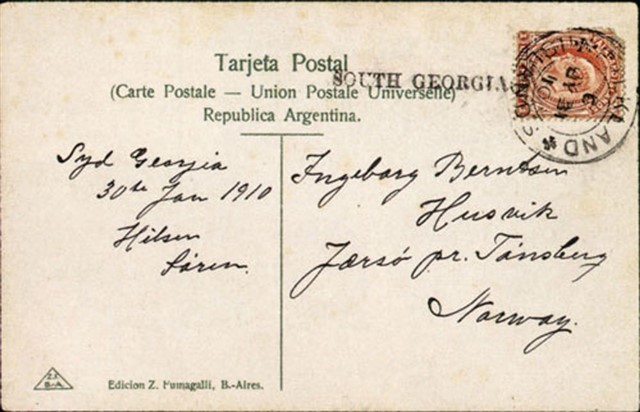 Tarjeta Postal
(Carte Postale — Union Postale Universelle)
Republica Argentina.
SOUTH GEORGIA
KLAND
Syd Georgia
30te Jan 1910
Hilsen
Sören.
Ingeborg Berntsen
Husvik
Jærsö pr. Tönsberg
Norway.
Z.F.
B.-A.
Edicion Z. Fumagalli, B.-Aires.